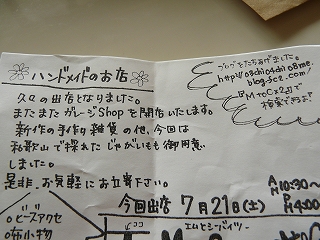 ハンドメイドのお店
久々の出店となりました。
またまたガレージShopを開店いたします。
新作の手作り雑貨の他、今回は
和歌山で採れたじゃがいもも御用意
しました。
是非、お気軽にお立寄下さい。
ブログをたちあげました。
blog.fc2.com/
『MtoCx2』で
検索できるよ!
今回出店 7月21日(土)
AM10:30〜
PM4:00
ビーズアクセ
布小物
ココ